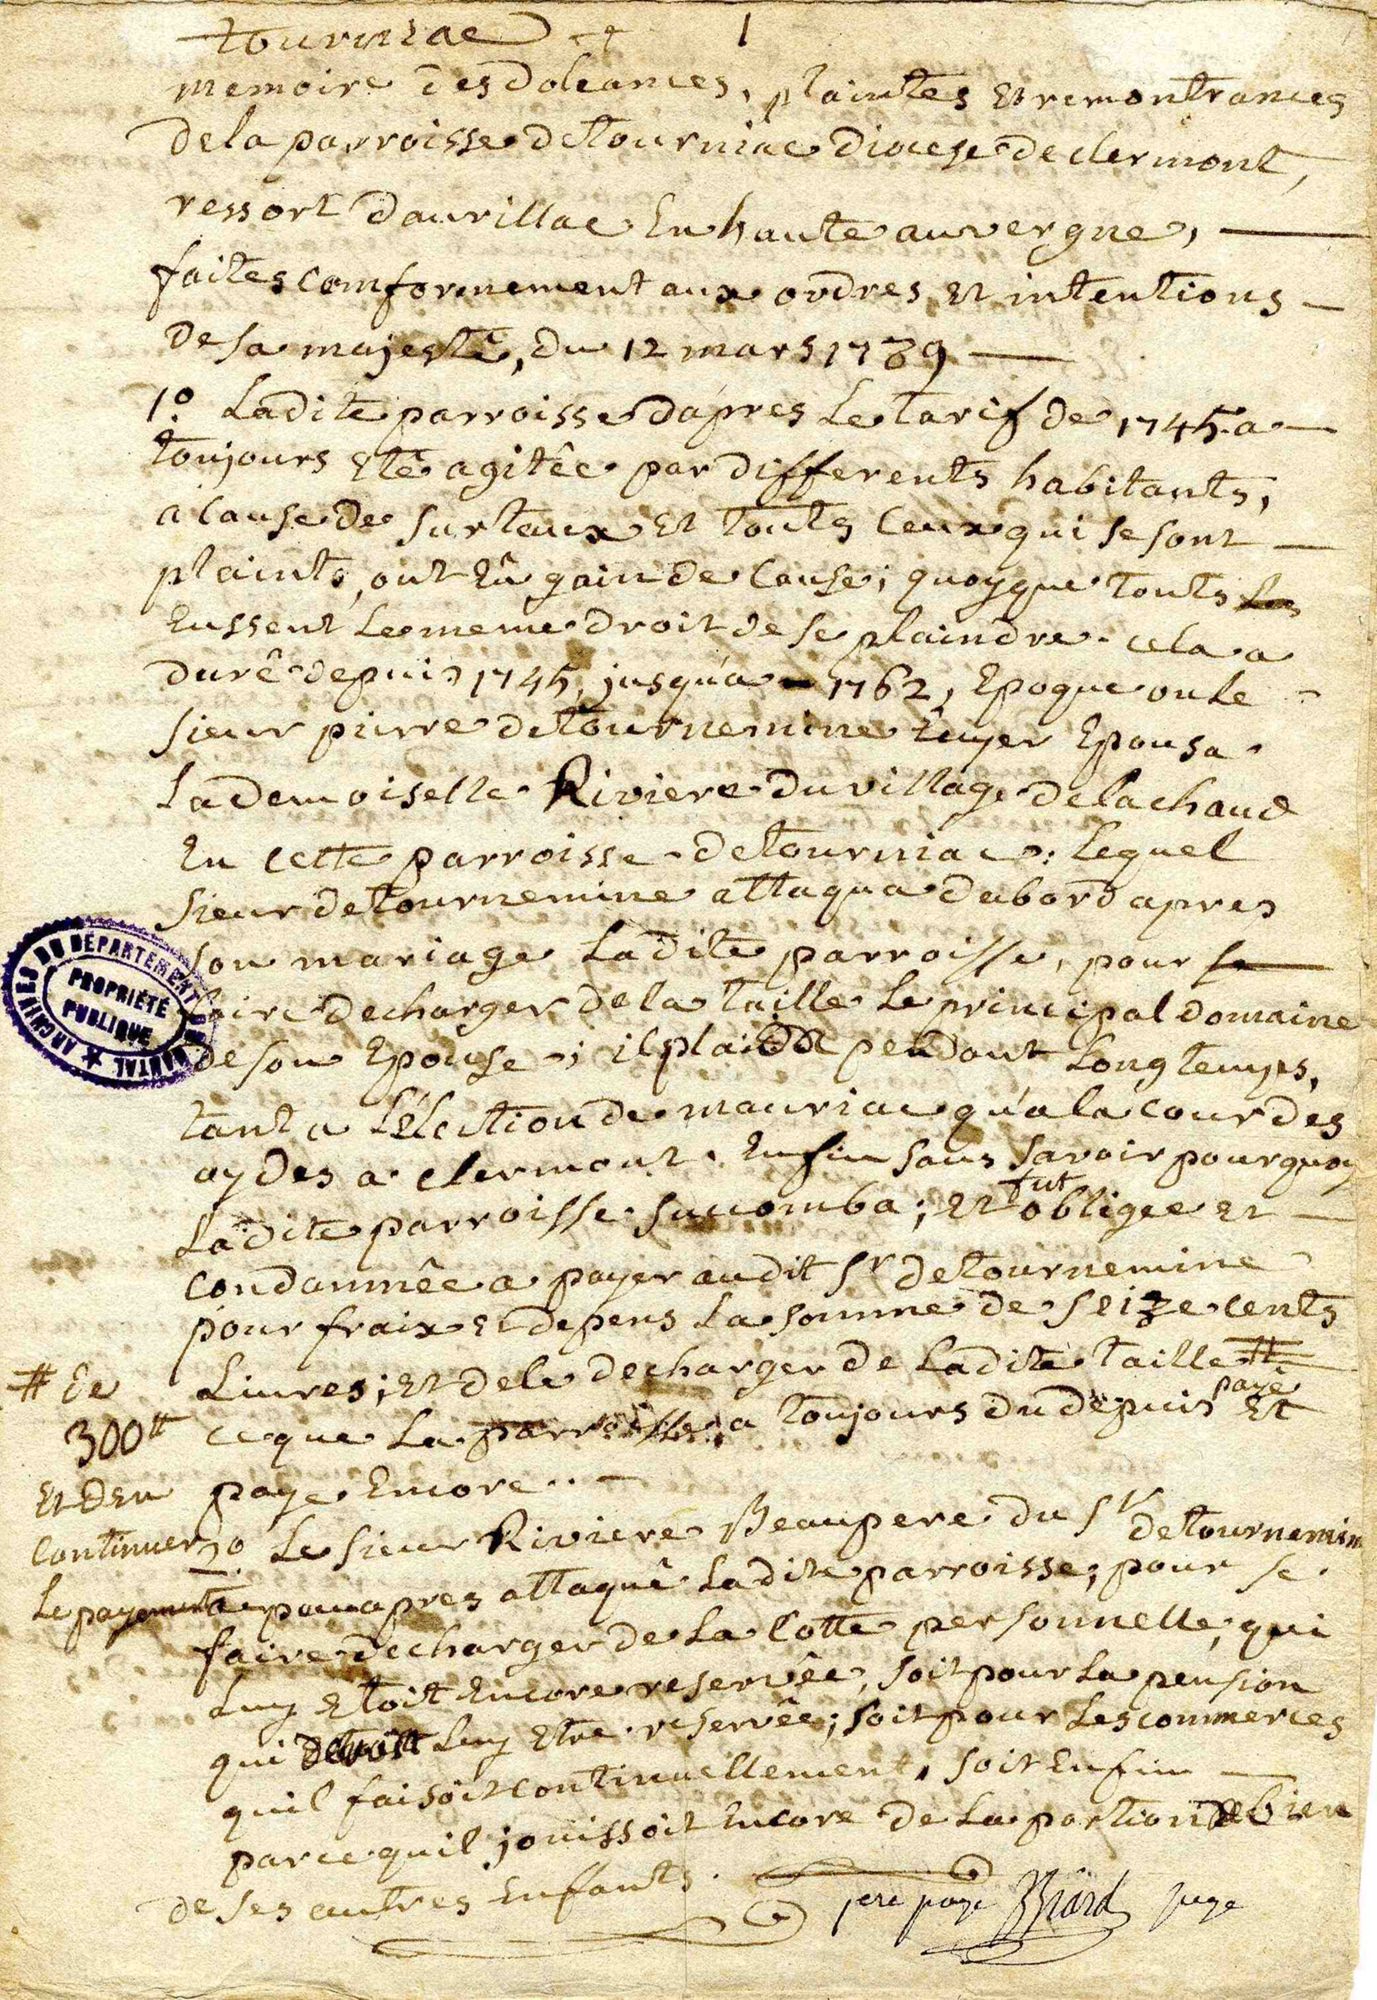 tourniac 1
memoire des doleances, plaintes et remontrances
de la parroisse de tourniac diocese de clermont,
ressort daurillac En haute auvergne,
faites comformement aux ordres et intentions
de sa majesté, du 12 mars 1789
1º. Ladite parroisse dapres Le tarif de 1745 a
toujours Eté agitêe par differents habitants,
a cause de surtaux et touts Ceux qui se sont
plaints, ont Eû gain de Cause; quoyque touts
Eussent Le meme droit de se plaindre. cela a
durê depuis 1745, jusqu'a 1762, Epoque ou Le
sieur pierre de tournemine Ecuyer Epousa
La demoiselle Riviere du village de la chaud
En cette parroisse de tourniac; Lequel
sieur de tournemine attaqua dabord apres
son mariage Ladite parroisse, pour se
faire decharger de la taille Le principal domaine
de son Epouse; il plaida pendant Longtemps,
tant a L'Election de mauriac qu'a la cour des
aydes a clermont. Enfin sans savoir pourquoy
Ladite parroisse succomba; et fut obligée et
condamnêe a payer audit Sr de tournemine
pour fraix et depens La somme de seize cents
Livres; et de le decharger de Ladite taille #
ce que La parroisse a toujours du depuis payé et
paye Encore..
# De
300 ₶
Et den
Continuer
Le payement
2º. Le sieur Riviere Beaupere du Sr de tournemine
a peu apres attaquê Ladite parroisse; pour se
faire decharger de La Cotte personnelle, qui
Luy Etoit Encore reservêe, soit pour La pension
qui devoit Luy Etre reservêe; soit pour Les commerces
quil faisoit continuellement, soit Enfin
parce quil jouissoit Encore de La portion de bien
de ses autres Enfants.
1ere page Biard juge
ARCHIVES DU DÉPARTEMENT DU CANTAL
PROPRIÉTÉ
PUBLIQUE